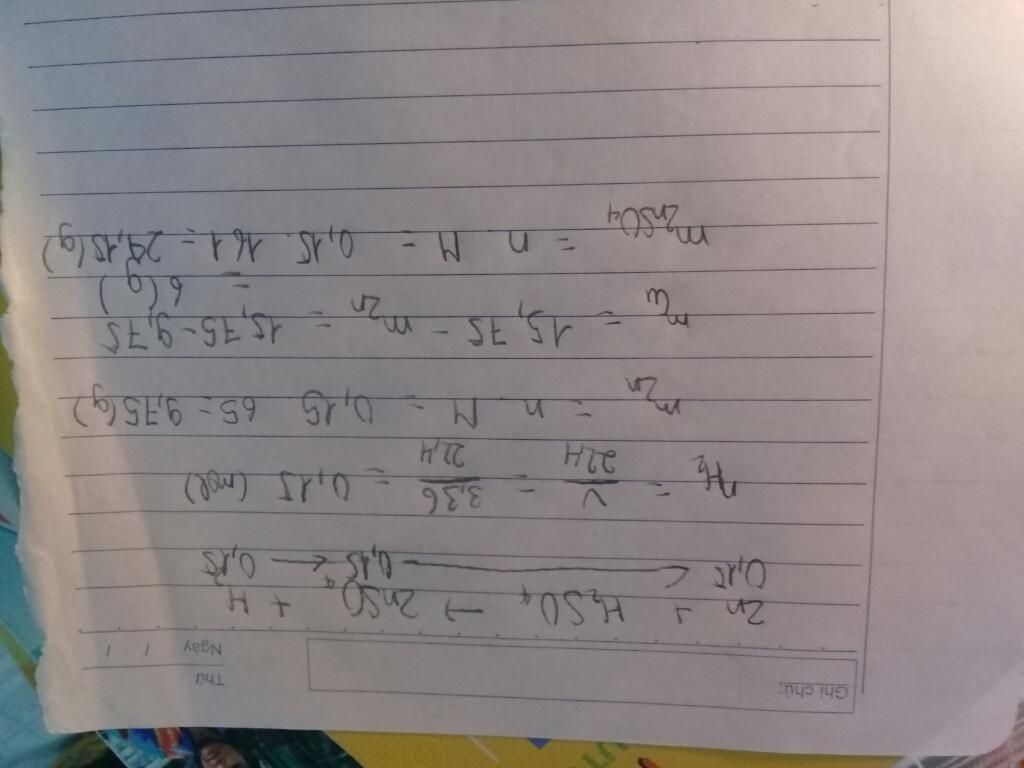 Ghi chú:
Thứ
Ngày / /
Zn + H₂SO₄ → ZnSO₄ + H₂
0,15 <———— 0,15 <— 0,15
n H₂ = V/22,4 = 3,36/22,4 = 0,15 (mol)
m Zn = n M = 0,15 65 = 9,75 (g)
m Cu = 15,75 - m Zn = 15,75 - 9,75
= 6 (g)
m ZnSO₄ = n M = 0,15. 161 = 24,15 (g)